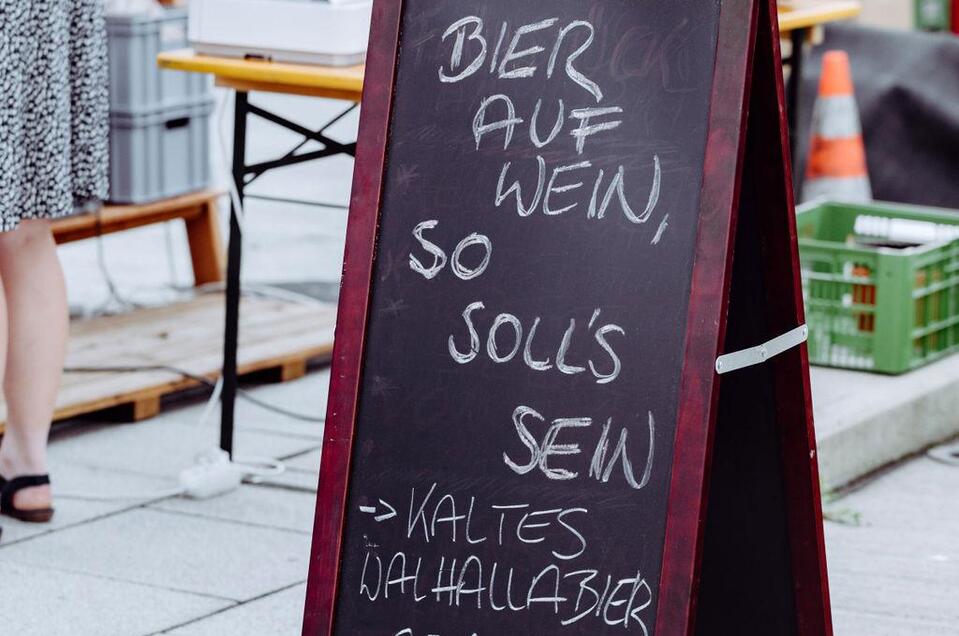 BIER
AUF
WEIN,
SO
SOLL'S
SEIN
-> KALTES
WALHALLABIER